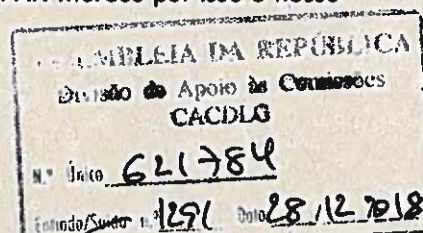 merece por isso o nosso
ASSEMBLEIA DA REPÚBLICA
Divisão de Apoio às Comissões
CACDLG
N.º Único 621784
Entrada/Saída n.º 1291 Data 28/12/2018